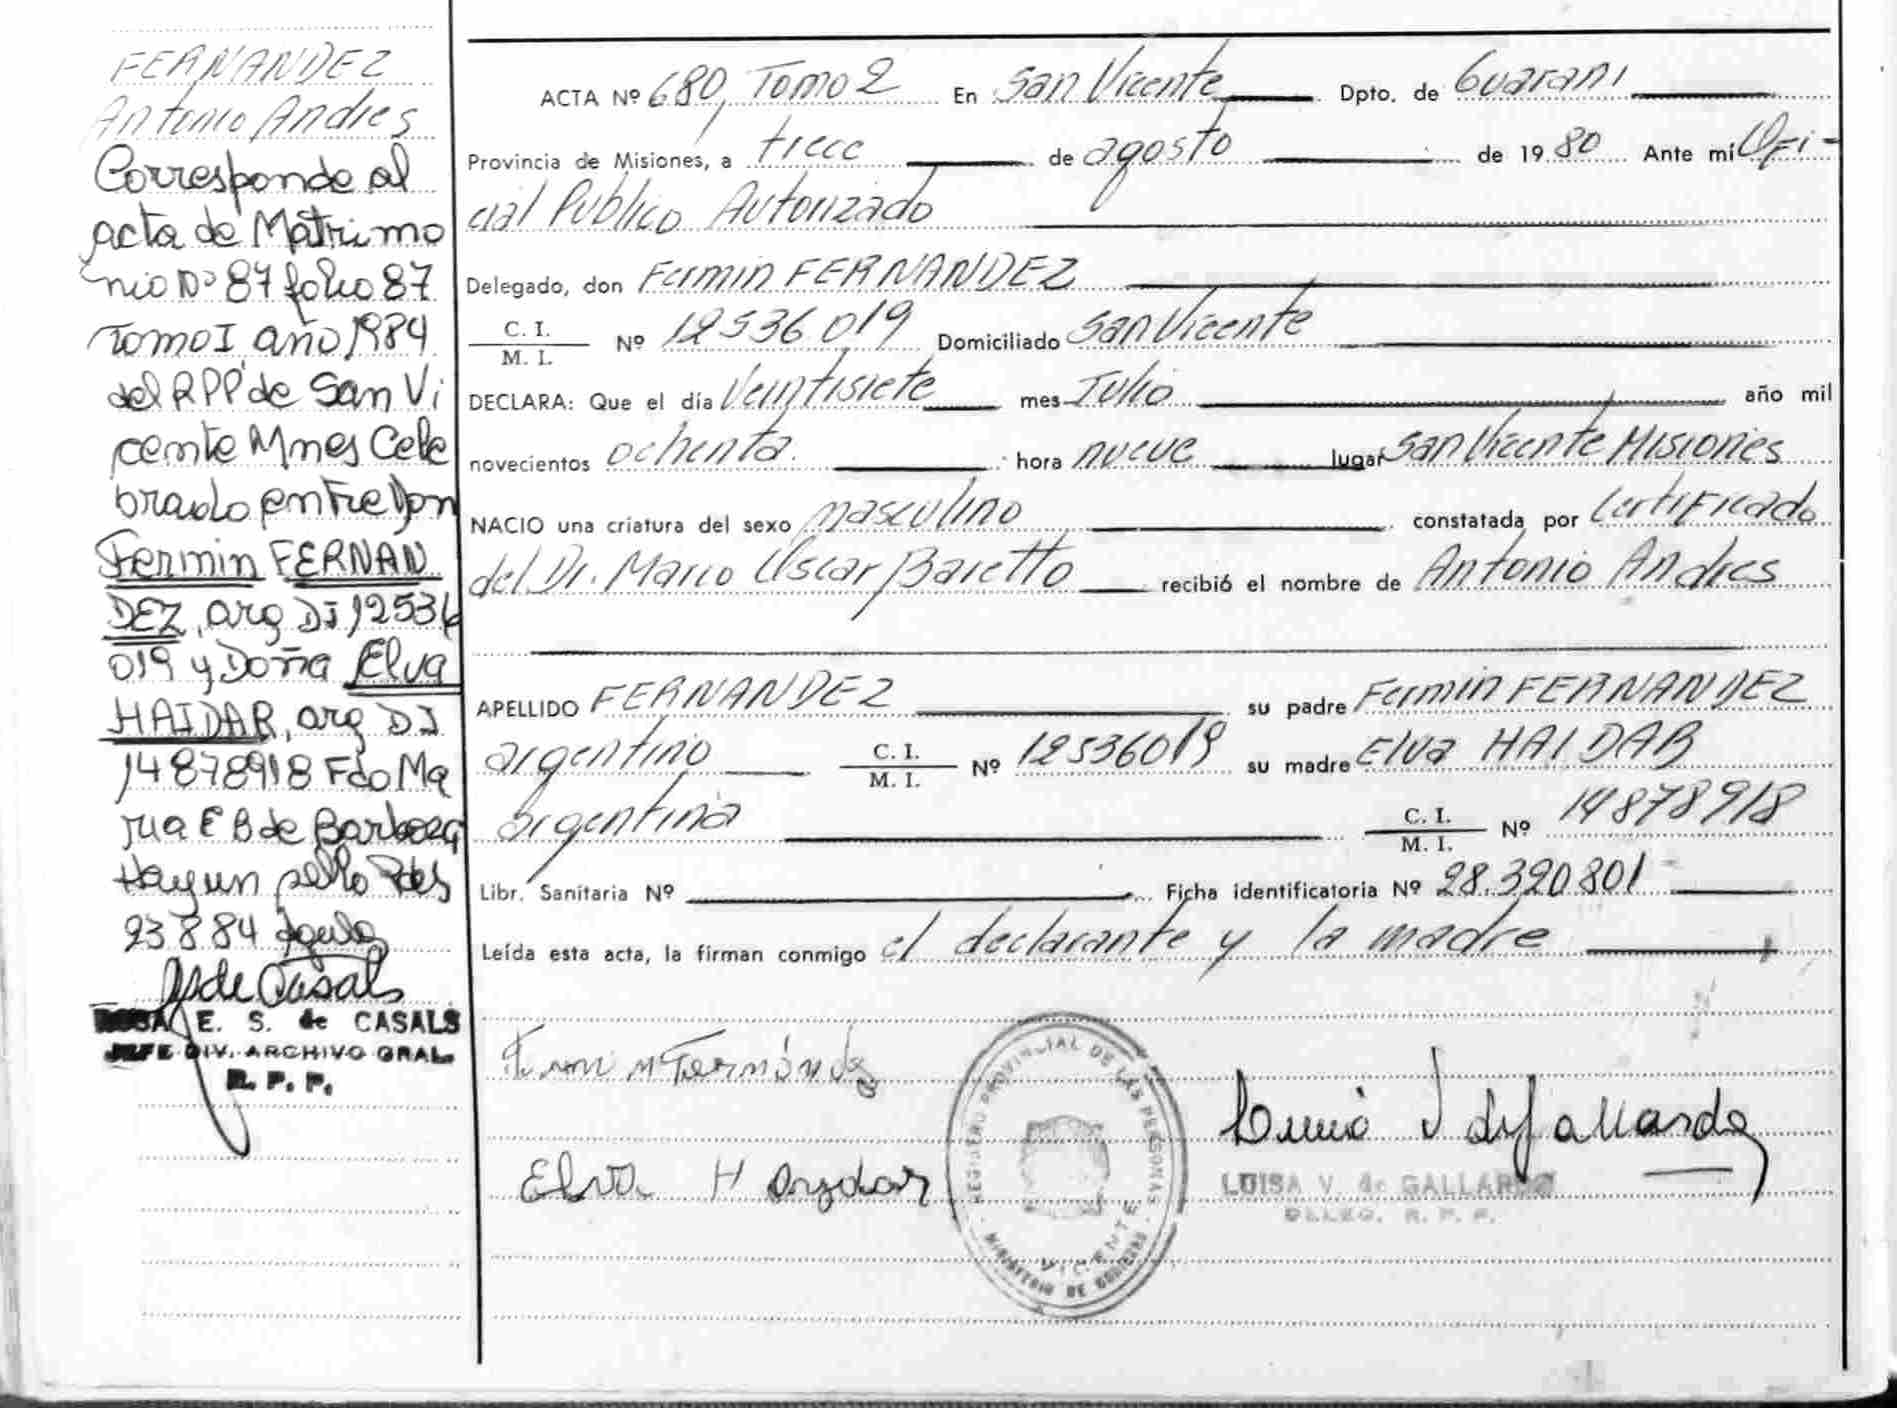 FERNANDEZ
Antonio Andres
Corresponde al
acta de Matrimo
nio Nº 87 folio 87
Tomo I año 1984
del RPP de San Vi
cente Mnes Cele
brado entre Don
Fermin FERNAN
DEZ, arg DI 12536
019 y Doña Elva
HAIDAR, arg DI
14878918 Fdo Ma
ria E B de Barboza
Hay un sello Pdas
23 8 84
de Casals
ROSA E. S. de CASALS
JEFE DIV. ARCHIVO GRAL.
R. P. P.
ACTA Nº 680, Tomo 2 En San Vicente Dpto. de Guarani
Provincia de Misiones, a trece de agosto de 1980 Ante mí Ofi-
cial Publico Autorizado
Delegado, don Fermin FERNANDEZ
C. I.
M. I. Nº 12536019 Domiciliado San Vicente
DECLARA: Que el día Veintisiete mes Julio año mil
novecientos ochenta. hora nueve lugar San Vicente Misiones
NACIO una criatura del sexo masculino constatada por Certificado
del Dr. Marco Oscar Baretto recibió el nombre de Antonio Andres
APELLIDO FERNANDEZ su padre Fermin FERNANDEZ
argentino C. I. M. I. Nº 12536019 su madre Elva HAIDAR
argentina C. I. M. I. Nº 14878918
Libr. Sanitaria Nº Ficha identificatoria Nº 28.320801
Leída esta acta, la firman conmigo el declarante y la madre
Fermin Fernández
Elva Haydar
REGISTRO PROVINCIAL DE LAS PERSONAS
VICENTE
MINISTERIO DE GOBIERNO
LUISA V. de GALLARDO
DELEG. R. P. P.